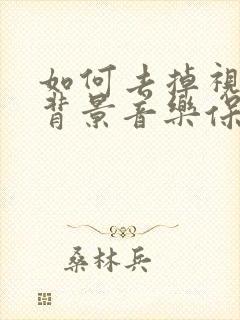 如何去掉视
背景音乐保
桑林兵